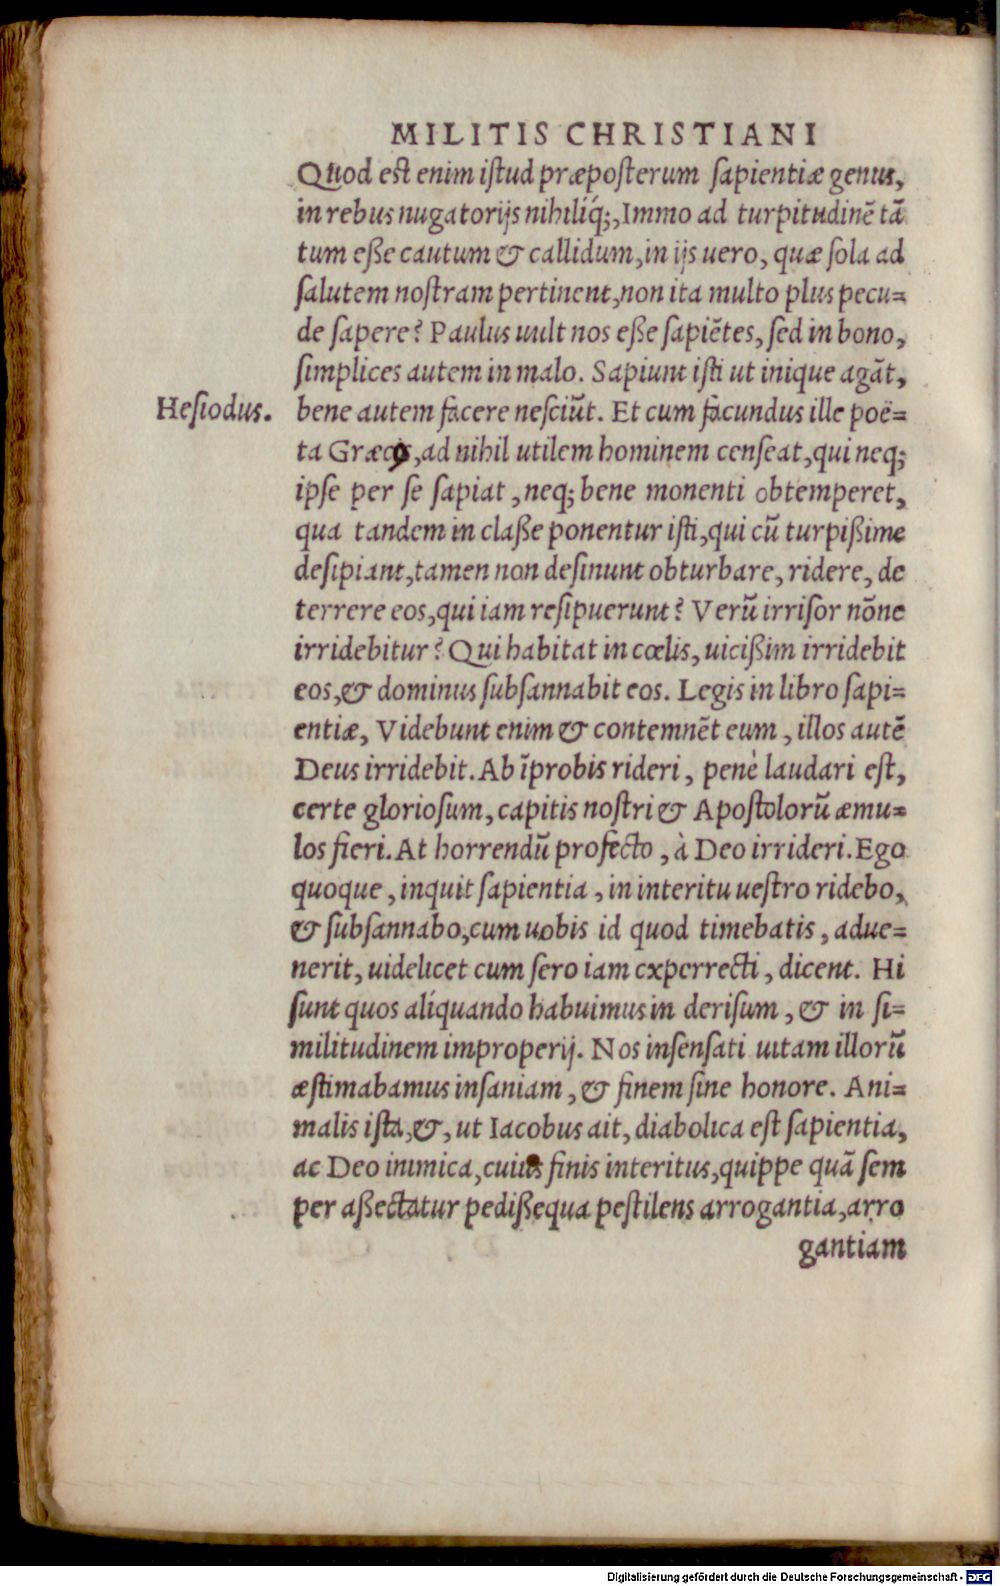 MILITIS CHRISTIANI
Quod est enim istud præposterum sapientiæ genus,
in rebus nugatorijs nihiliq́;, Immo ad turpitudinē tā
tum eße cautum & callidum, in ijs uero, quæ sola ad
salutem nostram pertinent, non ita multo plus pecu=
de sapere? Paulus uult nos eße sapiētes, sed in bono,
simplices autem in malo. Sapiunt isti ut inique agāt,
Hesiodus.
bene autem facere nesciūt. Et cum facundus ille poë=
ta Græcꝰ, ad nihil utilem hominem censeat, qui neq;
ipse per se sapiat, neq; bene monenti obtemperet,
qua tandem in claße ponentur isti, qui cū turpißime
desipiant, tamen non desinunt obturbare, ridere, de
terrere eos, qui iam resipuerunt? Verū irrisor nōne
irridebitur? Qui habitat in cœlis, uicißim irridebit
eos, & dominus subsannabit eos. Legis in libro sapi=
entiæ, Videbunt enim & contemnēt eum, illos autē
Deus irridebit. Ab īprobis rideri, penè laudari est,
certe gloriosum, capitis nostri & Apostolorū æmu=
los fieri. At horrendū profecto, à Deo irrideri. Ego
quoque, inquit sapientia, in interitu uestro ridebo,
& subsannabo, cum uobis id quod timebatis, adue=
nerit, uidelicet cum sero iam experrecti, dicent. Hi
sunt quos alíquando habuimus in derisum, & in si=
militudinem improperij. Nos insensati uitam illorū
æstimabamus insaniam, & finem sine honore. Ani=
malis ista, &, ut Iacobus ait, diabolica est sapientia,
ac Deo inimica, cuius finis interitus, quippe quā sem
per aßectatur pedißequa pestilens arrogantia, arro
gantiam
Digitalisierung gefördert durch die Deutsche Forschungsgemeinschaft - DFG